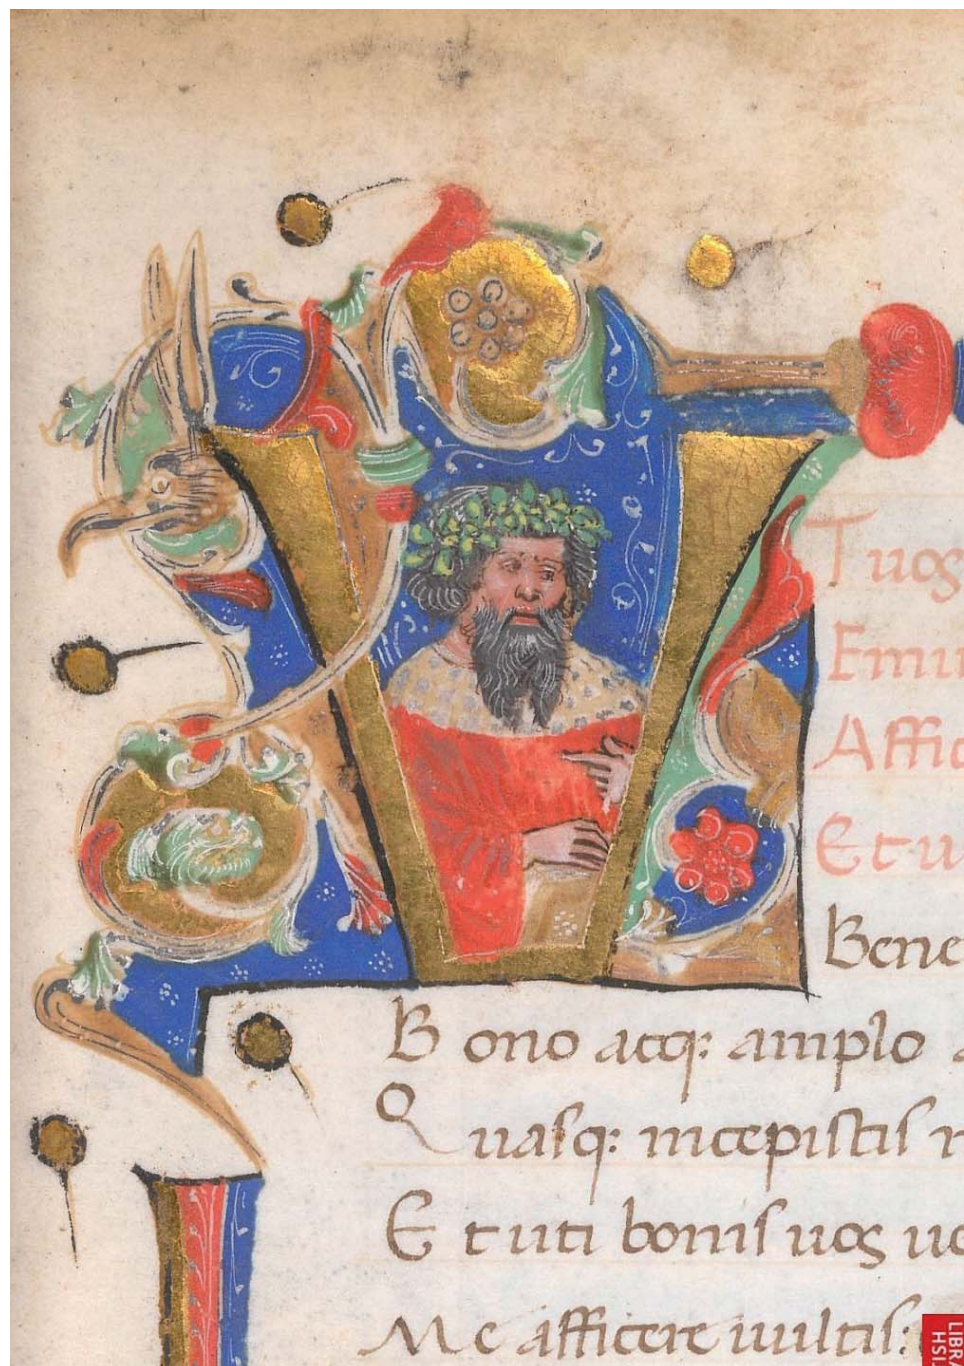 Tuos
Emi
Affic
Et u
Bene
Bono atq: amplo a
Quasq: incepistis n
Et uti bonis uos uo
Me afficere uultis:
LIBR
HSI